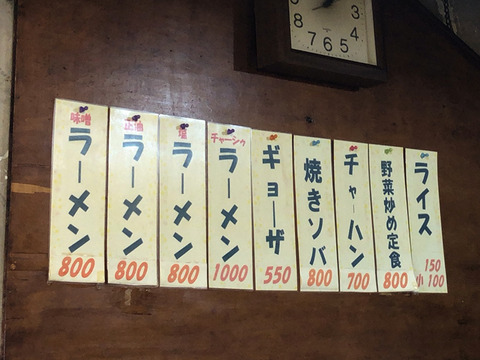 味噌
ラーメン
800
正油
ラーメン
800
塩
ラーメン
800
チャーシウ
ラーメン
1000
ギョーザ
550
焼きソバ
800
チャーハン
700
野菜炒め定食
800
ライス
150
小100
3
4
5
6
7
8